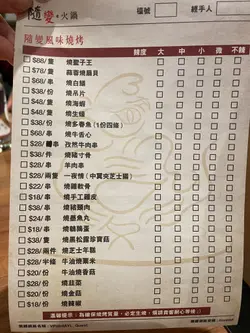 隨變·火鍋
檯號
經手人
隨變風味燒烤
辣度 大 中 小 微 不辣
$88/隻 燒聖子王
$78/隻 蒜蓉燒扇貝
$68/串 燒白鱔
$38/份 燒吊片
$48/串 燒海蝦
$48/隻 燒生蠔
$38/份 燒多春魚（1份四條）
$68/串 燒牛舌心
$28/串 孜然牛肉串
$38/件 燒豬寸骨
$28/串 羊肉串
$28/兩隻 一夜情（中翼夾芝士腸）
$22/串 燒雞軟骨
$18/串 燒手工雞皮
$38/串 燒豬頸肉
$18/串 燒墨魚丸
$18/串 燒鵪鶉蛋
$38/份 燒黑松露珍寶菇
$28/兩件 燒芝士年糕
$28/半條 牛油燒粟米
$20/份 牛油燒香菇
$22/份 燒茄子
$18/份 燒金菇
$18/份 燒辣椒